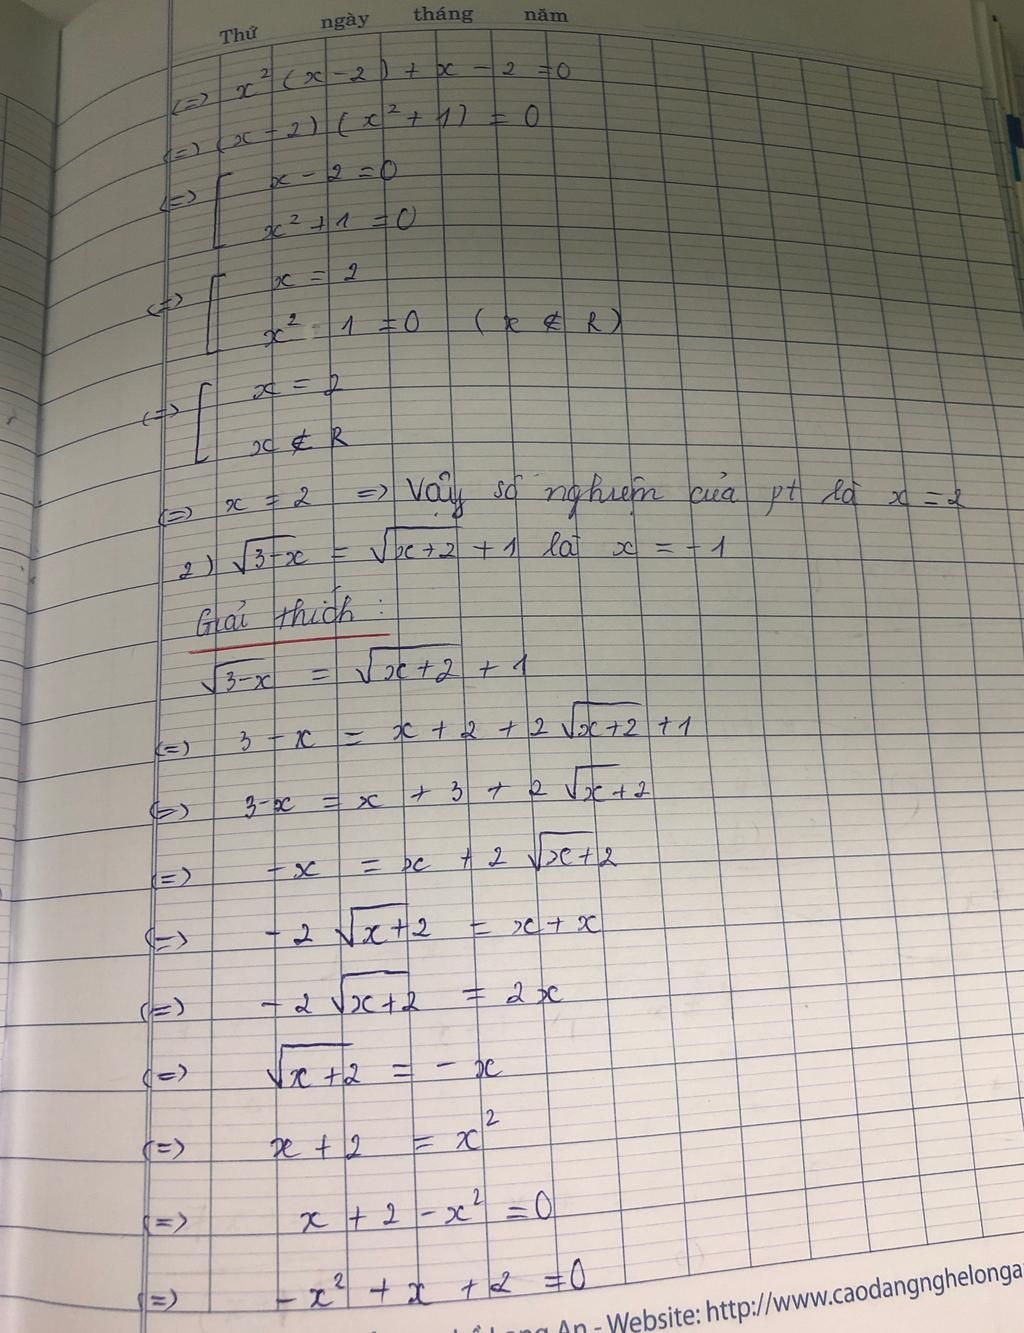 Thứ ngày tháng năm
(=) x² (x - 2) + x - 2 = 0
(=) (x - 2) (x² + 1) = 0
(=) [ x - 2 = 0
x² + 1 = 0
(=) [ x = 2
x² - 1 = 0 ( x ∉ R )
(=) [ x = 2
x ∉ R
(=) x = 2 => Vậy số nghiệm của pt là x = 2
2) √3-x = √x+2 + 1 là x = -1
Giải thích :
√3-x = √x+2 + 1
(=) 3 - x = x + 2 + 2 √x+2 + 1
(=) 3-x = x + 3 + 2 √x+2
(=) - x = x + 2 √x+2
(=) - 2 √x+2 = x + x
(=) - 2 √x+2 = 2x
(=) √x+2 = - x
(=) x + 2 = x²
(=) x + 2 - x² = 0
(=) - x² + x + 2 = 0
An - Website: http://www.caodangnghelonga